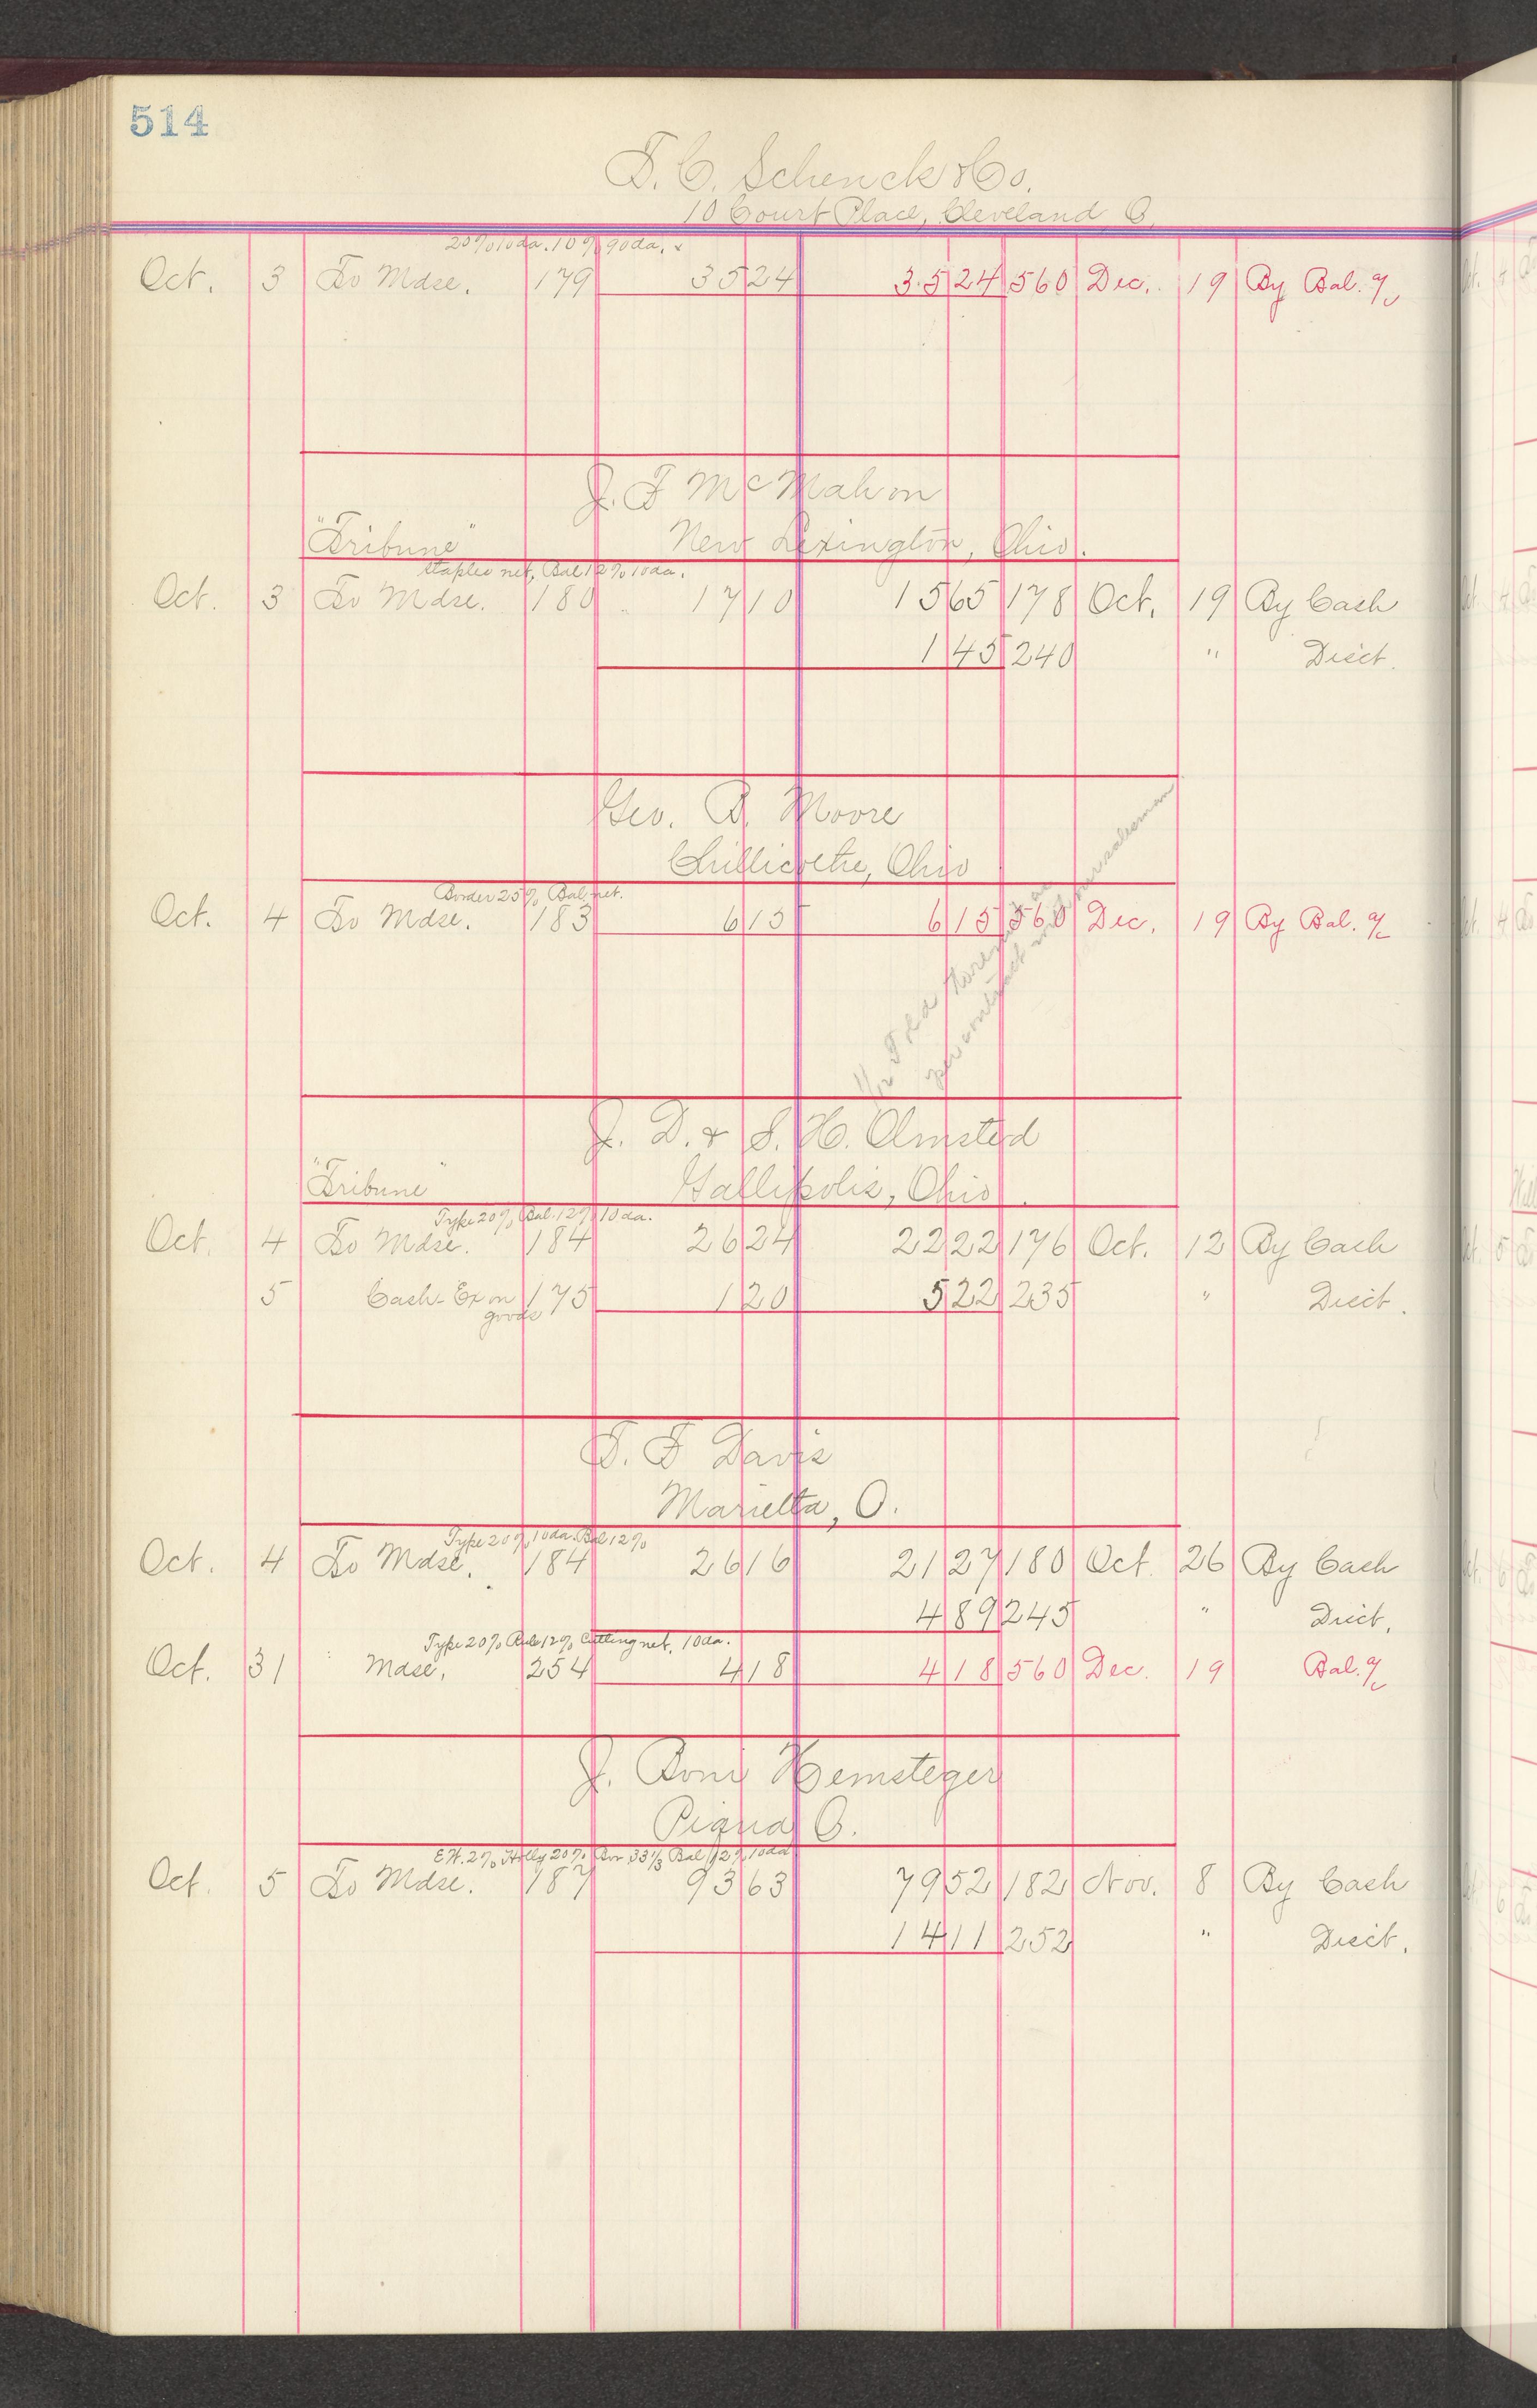 514
T. C. Schenck & Co.
10 Court Place, Cleveland O.
20% 10 da. 10% 90 da. x
Oct. 3 To Mdse. 179 35 24 35 24 560 Dec. 19 By Bal. a/c
J. F McMahon
"Tribune" New Lexington, Ohio.
Staples net, Bal 12% 10 da.
Oct. 3 To Mdse. 180 17 10 15 65 178 Oct. 19 By Cash
1 45 240 " Disct.
Geo. B. Moore
Chillicothe, Ohio
Border 25% Bal net.
Oct. 4 To Mdse. 183 6 15 6 15 560 Dec. 19 By Bal. a/c
per contract with our salesman
J. D. & S. H. Olmsted
"Tribune" Gallipolis, Ohio.
Type 20% Bal. 12% 10 da.
Oct. 4 To Mdse. 184 26 24 22 22 176 Oct. 12 By Cash
5 Cash-Ex on 175 1 20 5 22 235 " Disct.
goods
T. F Davis
Marietta, O.
Type 20% 10 da. Bal 12%
Oct. 4 To Mdse. 184 26 16 21 27 180 Oct. 26 By Cash
4 89 245 " Disct.
Type 20% Rule 12% Cutting net, 10 da.
Oct. 31 Mdse. 254 4 18 4 18 560 Dec. 19 Bal. a/c
J. Boni Hemsteger
Piqua O.
E.H. 2% Holly 20% Bor 33 1/3 Bal 12% 10 da
Oct. 5 To Mdse. 187 93 63 79 52 182 Nov. 8 By Cash
14 11 252 " Disct.